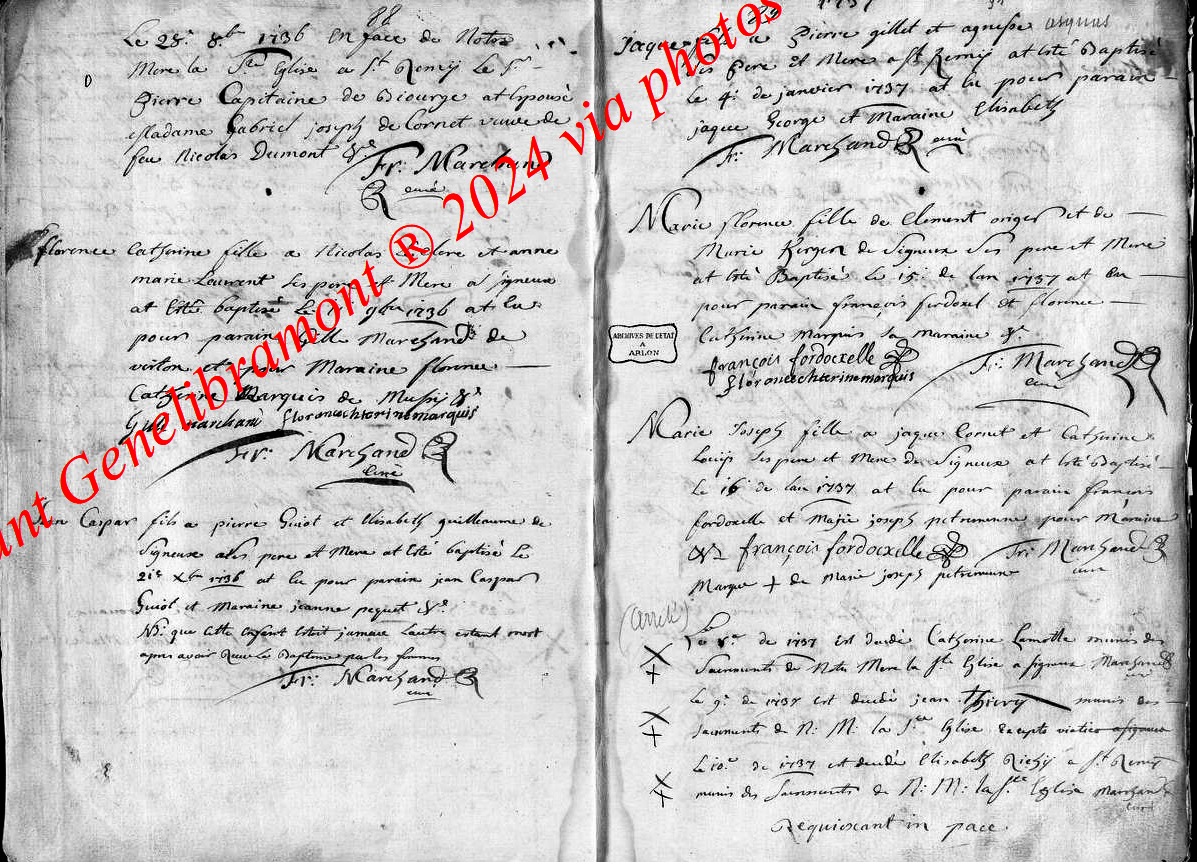 88
Le 28e 8bre 1736 En face de Notre
Mere la Ste Eglise a St Remy Le Sr
Pierre Capitaine de Biourge at Epousé
Madame Gabriel joseph de Cornet veuve de
feu Nicolas Dumont &c
Fr: Marchand
curé
florence Catherine fille a Nicolas et anne
marie Laurent ses pere et Mere a Signeux
at Eté baptisé Le 9bre 1736 at Eu
pour parain Gille Marchand de
virton et pour Maraine florence
Catherine Marquis de Mussy &c
Gille marchand florencechterinemarquis
Fr: Marchand
Curé
Jean Caspar fils a pierre Guiot et Elisabeth guilleaume de
Signeux ses pere et Mere at Eté baptisé Le
21e Xbre 1736 at Eu pour parain jean Caspar
Guiot et Maraine jeanne pequet &c
NB: que cette Enfant Estoit jumeau Lautre estant mort
apres avoir Receu Le Bapteme par les femmes
Fr: Marchand
curé
1737
Jaque fils a Pierre gillet et agnesse asquas
ses Pere et Mere a St Remy at Eté Baptisé
Le 4e de janvier 1737 at Eu pour parain
jaque George et Maraine Elisabeth
Fr: Marchand curé
Marie florence fille de Clement origer et de
Marie Kergen de Signeux Ses pere et Mere
at Eté Baptisé Le 15e de lan 1737 at Eu
pour parain françois fordoxel et florence
Catherine Marquis Sa Maraine &c
françois fordoxelle
florencechterinemarquis
Fr: Marchand
curé
ARCHIVES DE L'ETAT
A
ARLON
Marie Joseph fille a jaque Cornet et Catherine
Louis ses pere et Mere de Signeux at Eté Baptisé
Le 16e de lan 1737 at Eu pour parain francois
fordoxelle et Marie joseph petremenne pour Maraine
&c françois fordoxelle Fr: Marchand
curé
Marque + de Marie joseph petremenne
(arreté)
Le de 1737 Est decedé Catherine Lamotte munis des
Sacrements de Notre Mere la Ste Eglise a Signeux Marchand
curé
Le 9e de 1737 est decedé jean Thiery munis des
Sacrements de N: M: la Ste Eglise Excepté viatico
Le 10e de 1737 est decedé Elisabeth Richy a St Remy
munis des Sacrements de N: M: la Ste Eglise Marchand
curé
Requiescant in pace
ant Genelibramont ® 2024 via photos